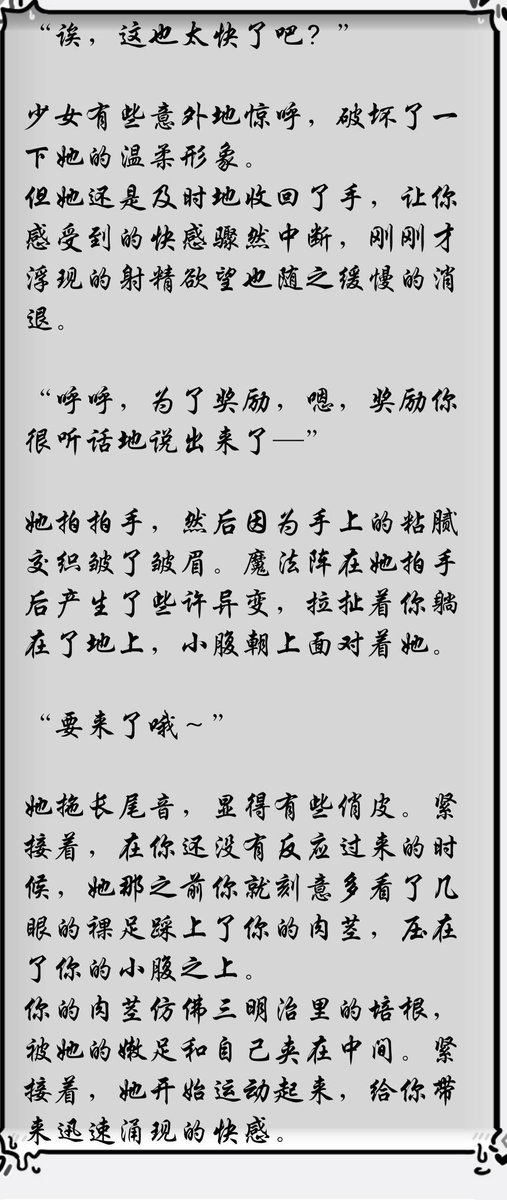 “诶，这也太快了吧？”
少女有些意外地惊呼，破坏了一
下她的温柔形象。
但她还是及时地收回了手，让你
感受到的快感骤然中断，刚刚才
浮现的射精欲望也随之缓慢的消
退。
“呼呼，为了奖励，嗯，奖励你
很听话地说出来了—”
她拍拍手，然后因为手上的粘腻
交织皱了皱眉。魔法阵在她拍手
后产生了些许异变，拉扯着你躺
在了地上，小腹朝上面对着她。
“要来了哦～”
她拖长尾音，显得有些俏皮。紧
接着，在你还没有反应过来的时
候，她那之前你就刻意多看了几
眼的裸足踩上了你的肉茎，压在
了你的小腹之上。
你的肉茎仿佛三明治里的培根，
被她的嫩足和自己夹在中间。紧
接着，她开始运动起来，给你带
来迅速涌现的快感。